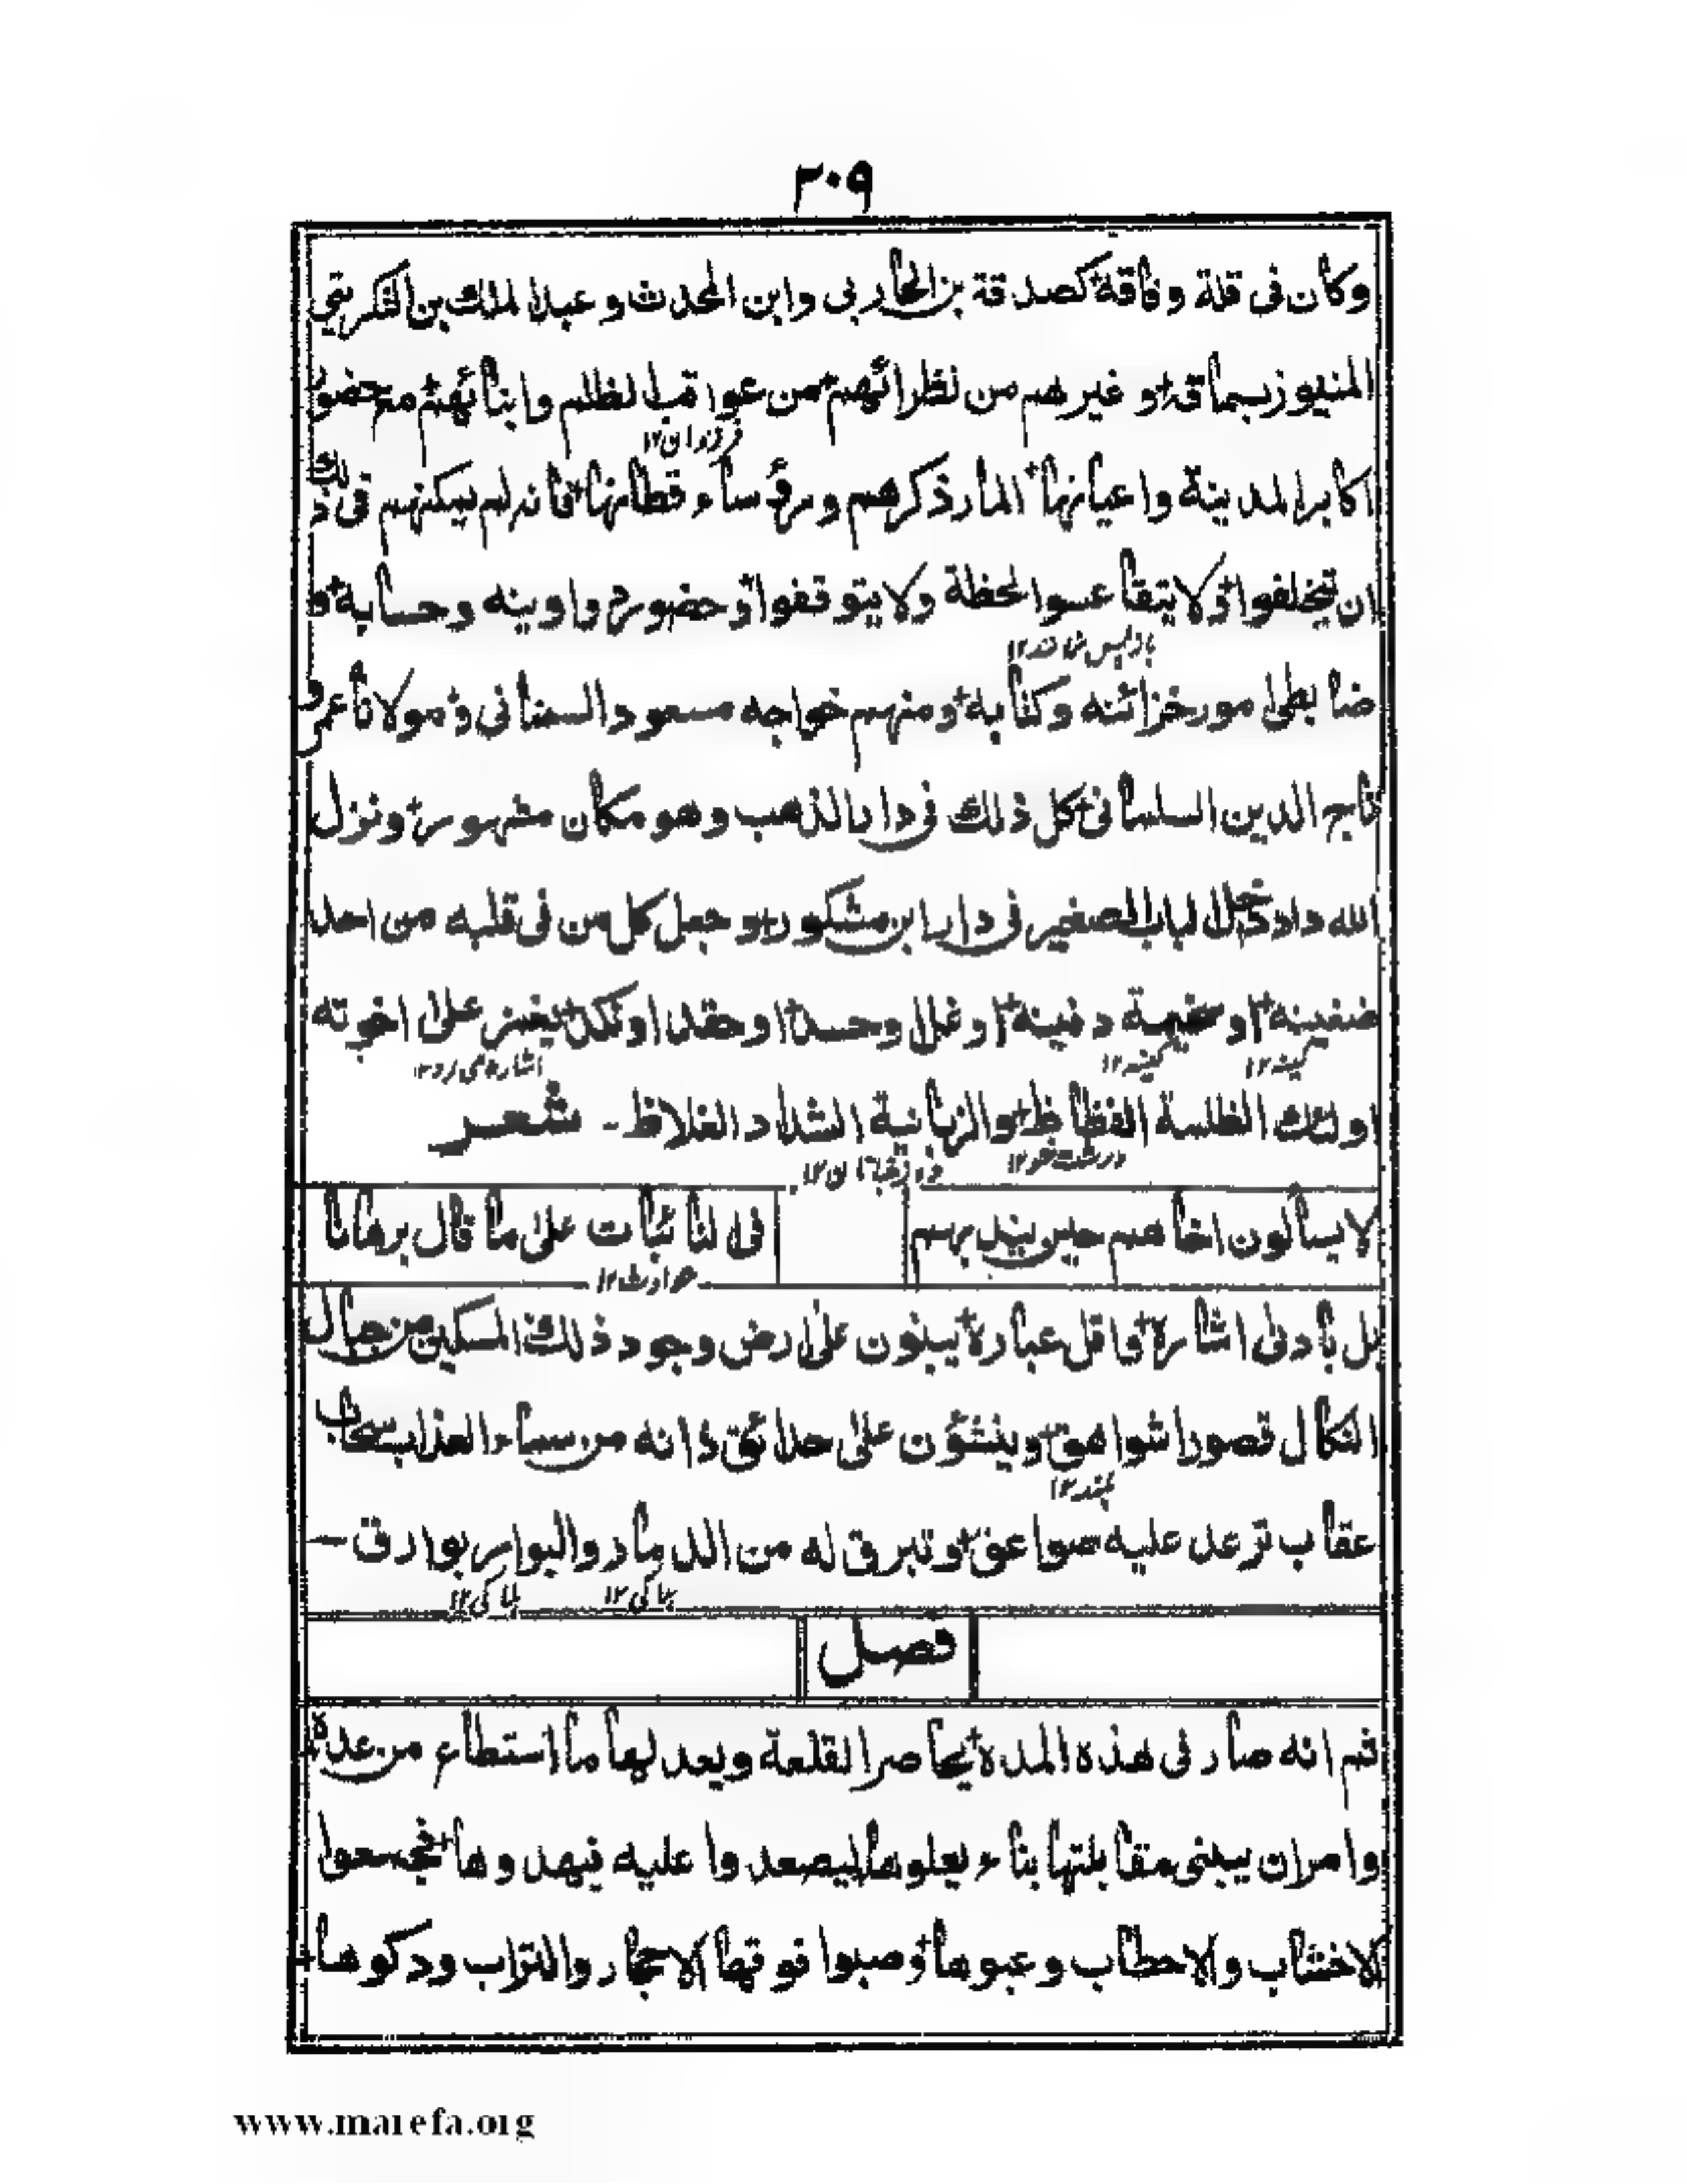 ٢٠٩
وكان فى قلة وفاقة كصدقة بن الحاربى وابن المحدث وعبد الملك بن التكريتى
المنبوز بسماقة وغيرهم من نظرائهم من عواقب الظلم وابنائهم مع حضور
فرزندان١٢
اكابر المدينة واعيانها المار ذكرهم ورؤساء قطانها فانه لم يمكنهم فى ذلك
ان يتخلفوا ولا يتقاعسوا لحظة ولا يتوقفوا وحضور دواوينه وحسابه و
ضابطى امور خزائنه وكتابه ومنهم خواجه مسعود السمنانى ومولانا عمر و
تاج الدين السلمانى كل ذلك فى دار الذهب وهو مكان مشهور ونزل
الله داد داخل الباب الصغير فى دار ابن مشكور وجعل كل من فى قلبه من احد
ضغينة او سخيمة دفينة او غل وحسد او حقد او نكد يغمز على اخوته
كينه١٢ كينه١٢ اشاره مى زد١٢
اولئك الظلمة الفظاظ والزبانية الشداد الغلاظ - شعر
درشت خو١٢
لا يسألون اخاهم حين يندبهم فى النائبات على ما قال برهانا
حوادث١٢
بل بادنى اشارة واقل عبارة يبنون على ارض وجود ذلك المسكين من جبال
النكال قصورا شواهق وينشؤن على حدائق ذاته من سماء العذاب سحاب
بلند١٢
عقاب ترعد عليه صواعق وتبرق له من الدمار والبوار بوارق -
هلاكى١٢ هلاكى١٢
فصل
ثم انه صار فى هذه المدة يحاصر القلعة ويعد لها ما استطاع من عدة
وامر ان يبنى مقابلتها بناء يعلوها ليصعدوا عليه فيهدوها فجمعوا
الاخشاب والاحطاب وعبوها وصبوا فوقها الاحجار والتراب ودكوها
www.marefa.org